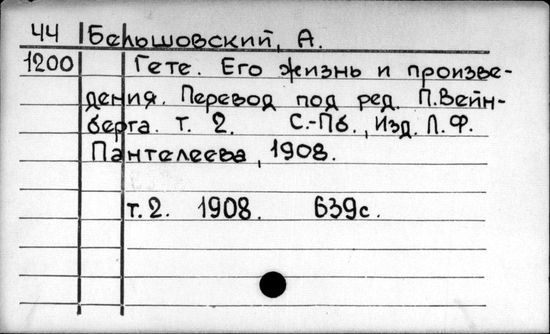 44 Бельшовский, А.
1200 Гете. Его жизнь и произве-
дения. Перевод под ред. П.Вейн-
берга. Т. 2. С.-Пб., Изд. Л.Ф.
Пантелеева, 1908.
т.2. 1908. 639с.